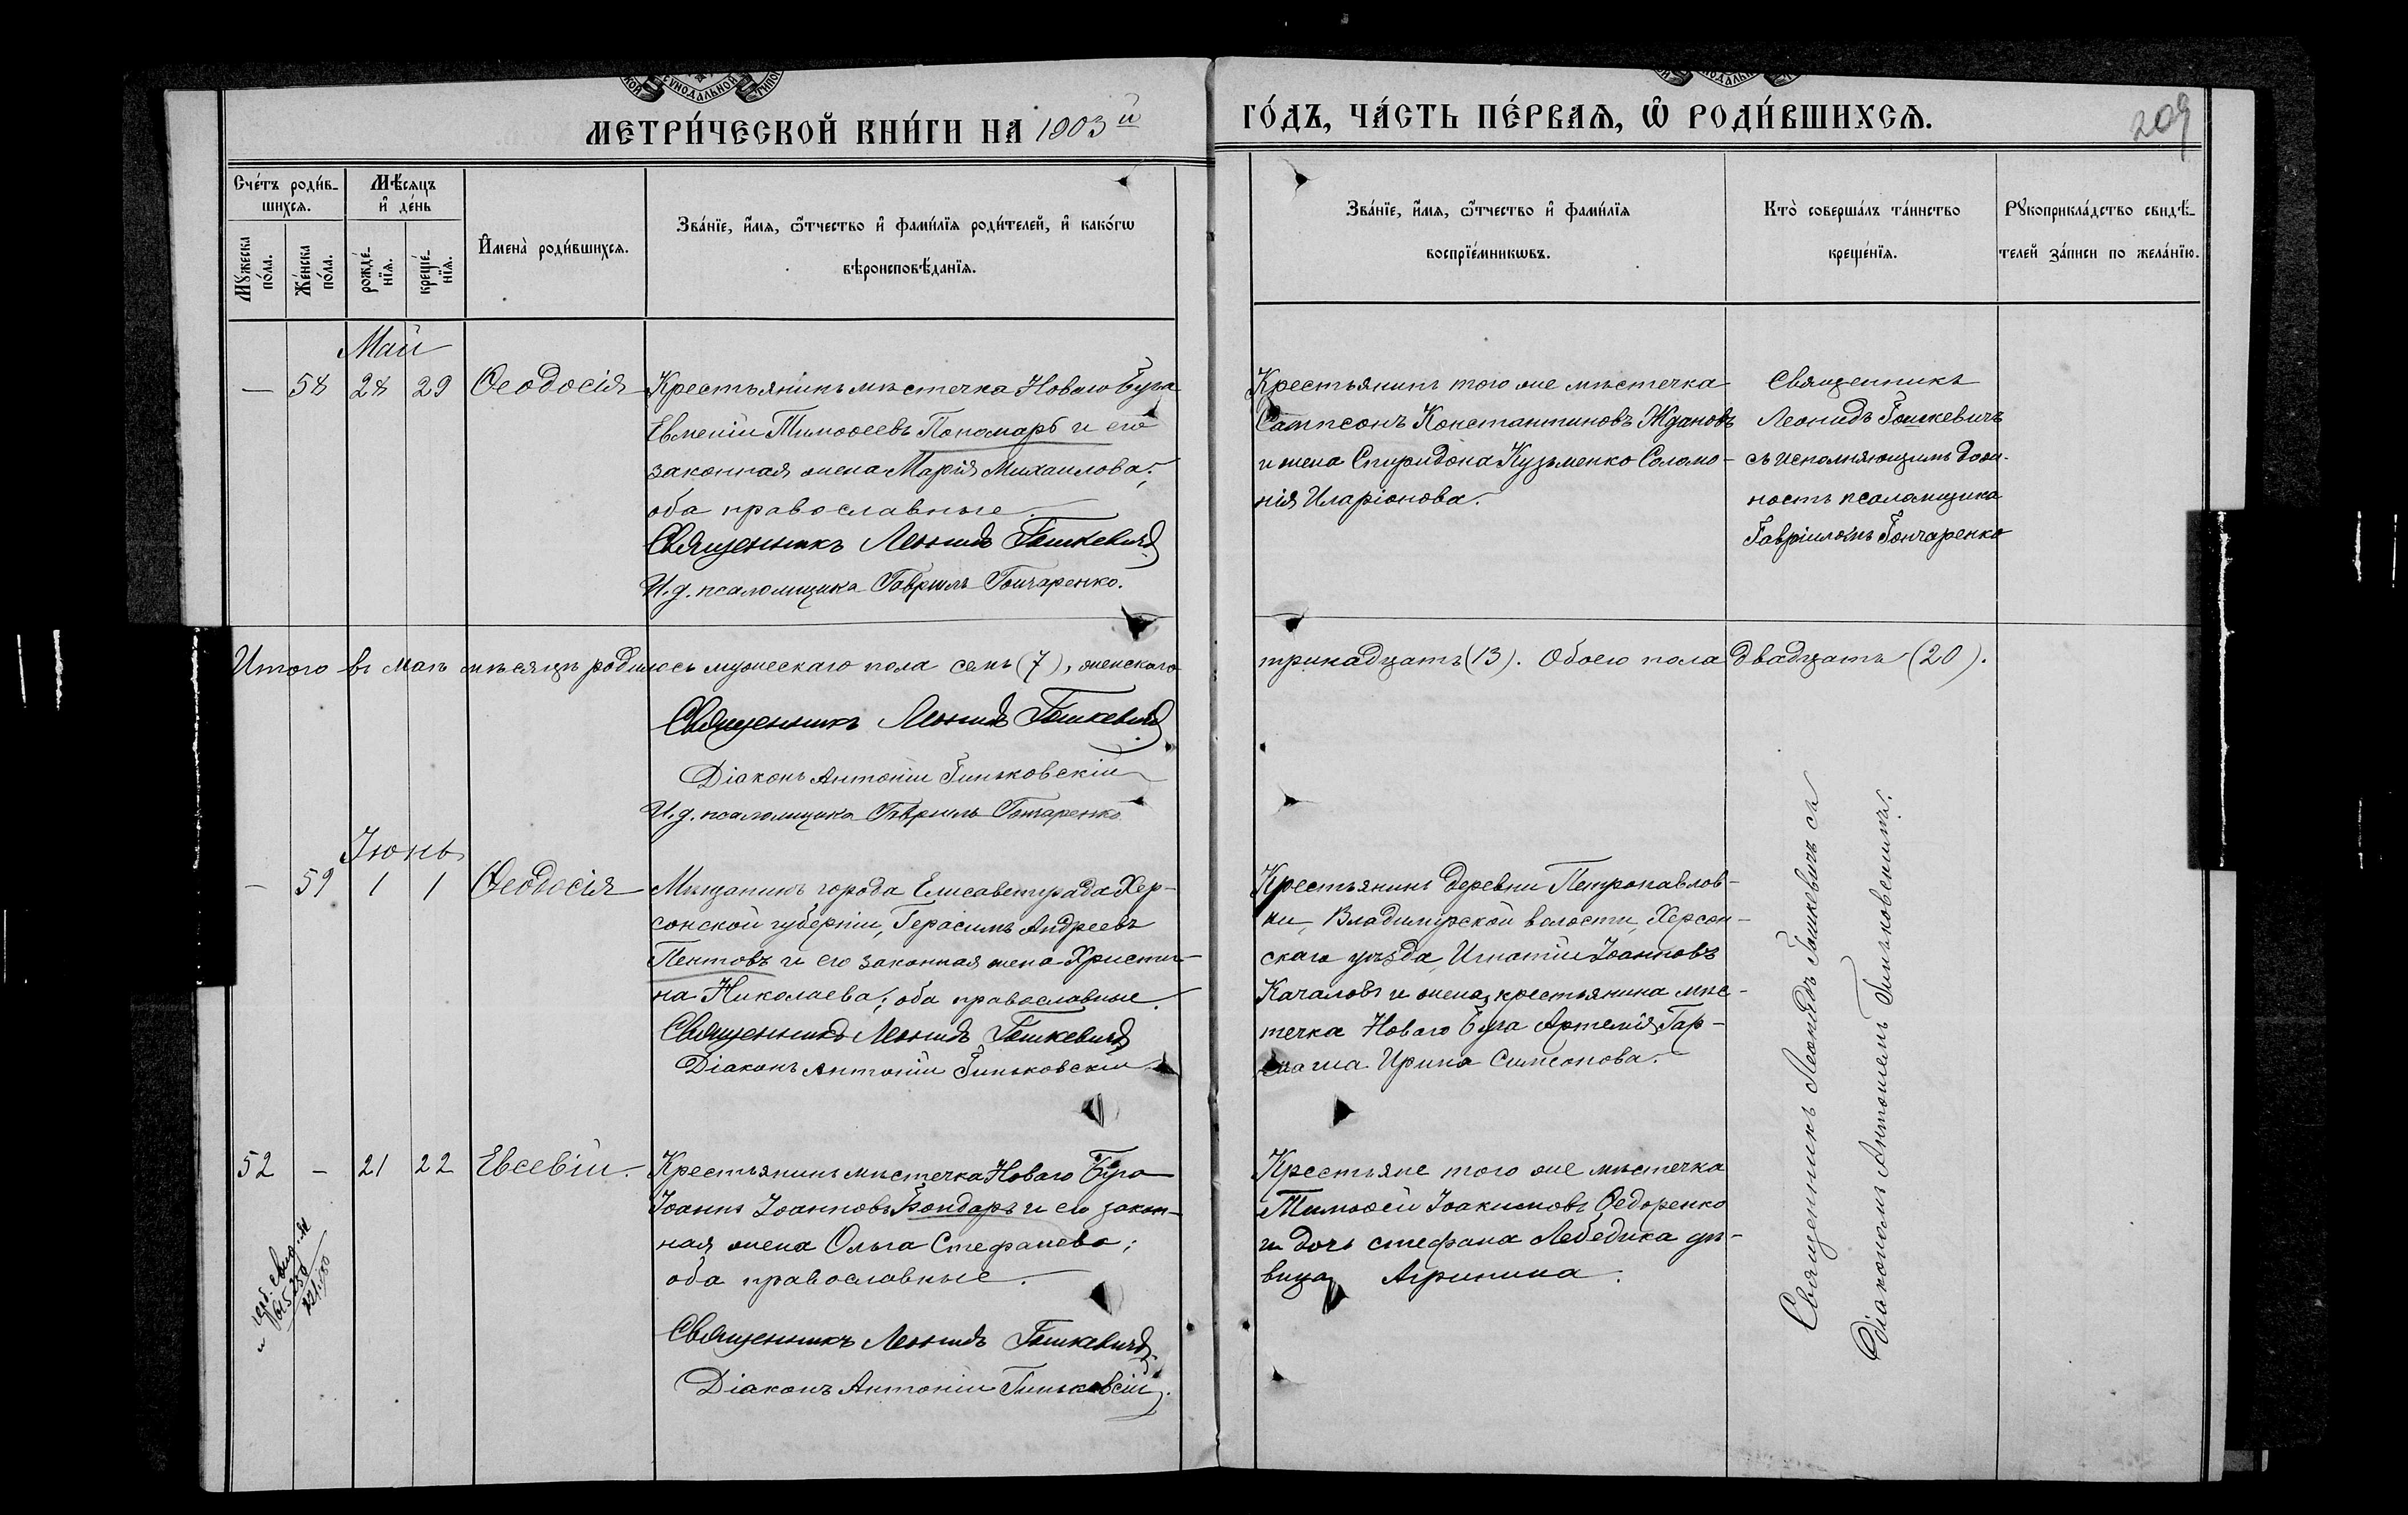 МЕТРИ́ЧЕСКОЙ КНИ́ГИ НА 1903й
ГО́ДЪ, ЧА́СТЬ ПЕ́РВАЯ, Ѡ҆ РОДИ́ВШИХСЯ.
209
Сче́тъ роди́в-
шихся.
Мѣ́сяцъ
и҆ де́нь
Мꙋ́жеска
по́ла.
Же́нска
по́ла.
рожде́-
нїя.
креще́-
нїя.
И҆мена̀ роди́вшихся.
Зва́нїе, и҆́мя, ѻ҆́тчество и҆ фами́лїя роди́телей, и҆ како́гѡ
вѣроисповѣ́данїя.
Зва́нїе, и҆́мя, ѻ҆́тчество и҆ фами́лїя
воспрїе́мникѡвъ.
Кто̀ соверша́лъ та́инство
креще́нїя.
Рꙋкоприкла́дство свидѣ́-
телей за́писи по жела́нїю.
Май
— 58 28 29 Ѳеодосія
Крестьянинъ мѣстечка Новаго Буга
Евменій Тимоѳеевъ Пономарь и его
законная жена Марія Михаилова;
оба православные.
Священникъ Леонидъ Гошкевичъ
И. д. псаломщика Гавріилъ Гончаренко.
Крестьянинъ того же мѣстечка
Сампсонъ Константиновъ Ждановъ
и жена Спиридона Кузьменко Соломо-
нія Иларіонова.
Священникъ
Леонидъ Гошкевичъ
съ исполняющимъ долж-
ность псаломщика
Гавріиломъ Гончаренко
Итого въ маѣ мѣсяцѣ родилось мужескаго пола семь (7), женскаго
тринадцать (13). Обоего пола двадцать (20).
Священникъ Леонидъ Гошкевичъ
Діаконъ Антоній Гиньковскій
И. д. псаломщика Гавріилъ Гончаренко
Іюнь
— 59 1 1 Ѳеодосія
Мѣщанинъ города Елисаветграда Хер-
сонской губерніи, Герасимъ Андреевъ
Пентовъ и его законная жена Христи-
на Николаева; оба православные.
Священникъ Леонидъ Гошкевичъ
Діаконъ Антоній Гиньковскій
Крестьянинъ деревни Петропавлов-
ки, Владимірской волости, Херсон-
скаго уѣзда, Игнатій Іоанновъ
Качаловъ и жена крестьянина мѣс-
течка Новаго Буга Артемія Гар-
маша Ирина Симеонова.
52 — 21 22 Евсевій.
Крестьянинъ мѣстечка Новаго Буга
Іоаннъ Іоанновъ Бондарь и его закон-
ная жена Ольга Стефанова;
оба православные.
Священникъ Леонидъ Гошкевичъ
Діаконъ Антоній Гиньковсій.
Крестьяне того же мѣстечка
Тимоѳей Іоакимовъ Ѳедоренко
и дочь Стефана Лебедика дѣ-
вица Агрипина.
Священникъ Леонидъ Гошкевичъ съ
діакономъ Антоніемъ Гиньковскимъ.